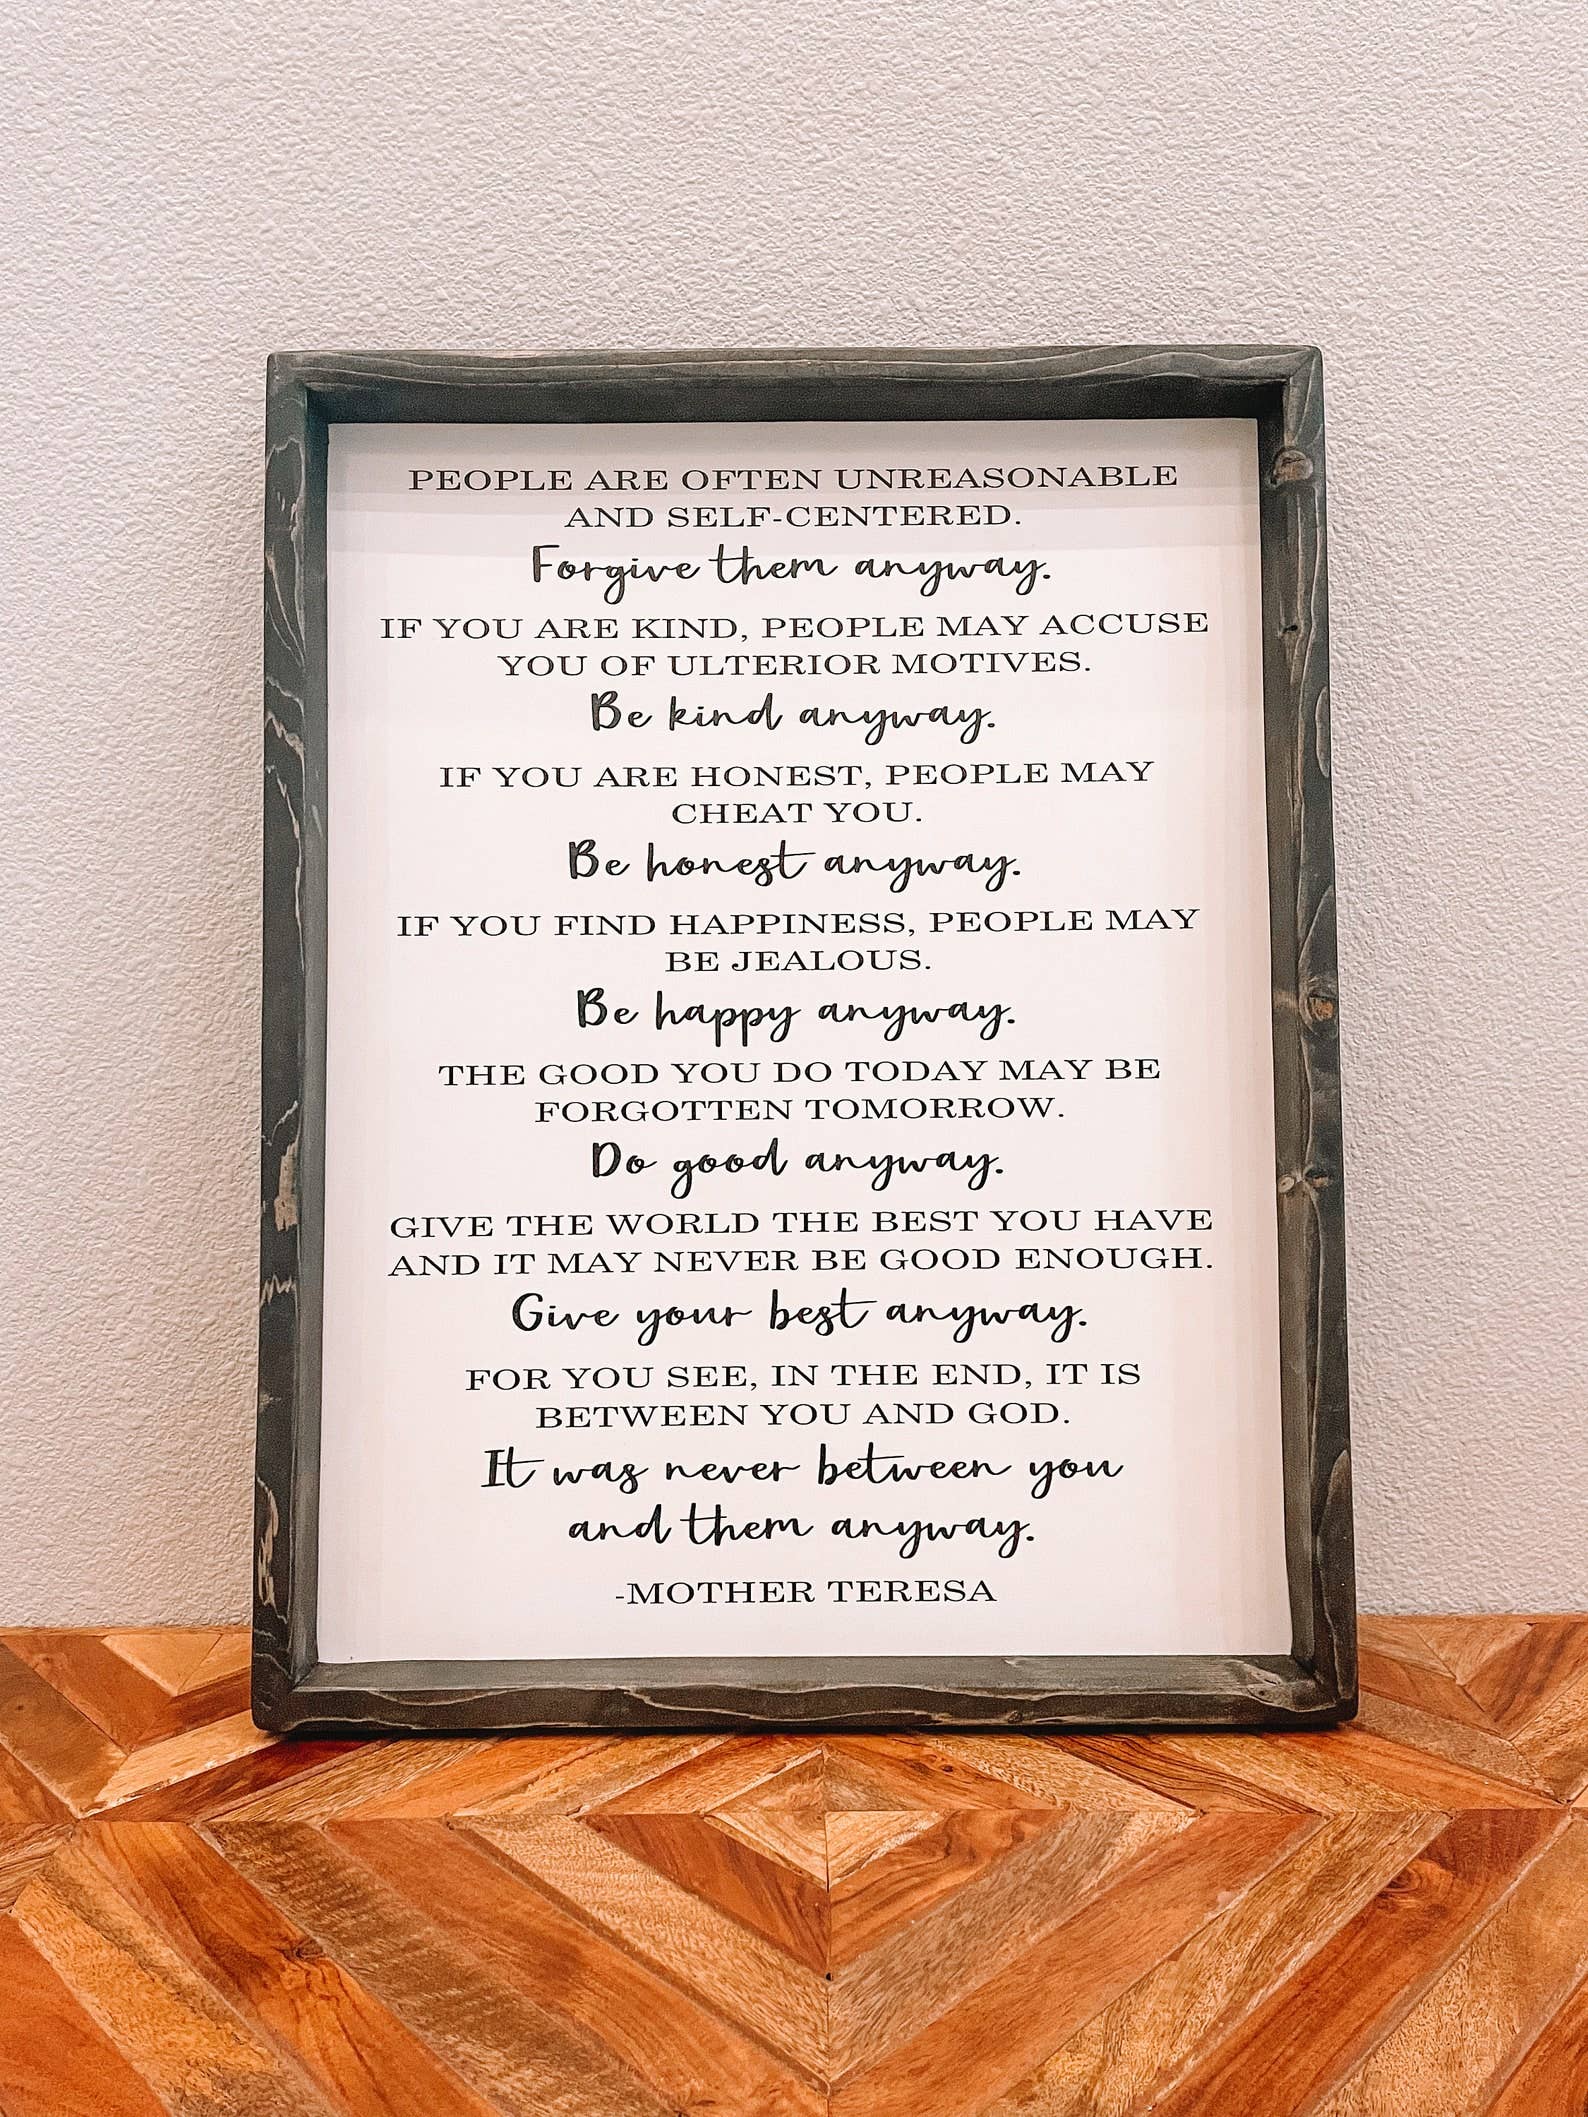 PEOPLE ARE OFTEN UNREASONABLE
AND SELF-CENTERED.
Forgive them anyway.
IF YOU ARE KIND, PEOPLE MAY ACCUSE
YOU OF ULTERIOR MOTIVES.
Be kind anyway.
IF YOU ARE HONEST, PEOPLE MAY
CHEAT YOU.
Be honest anyway.
IF YOU FIND HAPPINESS, PEOPLE MAY
BE JEALOUS.
Be happy anyway.
THE GOOD YOU DO TODAY MAY BE
FORGOTTEN TOMORROW.
Do good anyway.
GIVE THE WORLD THE BEST YOU HAVE
AND IT MAY NEVER BE GOOD ENOUGH.
Give your best anyway.
FOR YOU SEE, IN THE END, IT IS
BETWEEN YOU AND GOD.
It was never between you
and them anyway.
-MOTHER TERESA